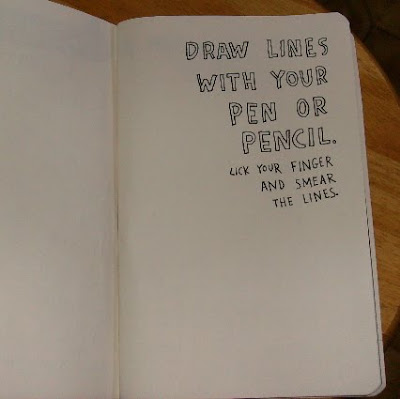 DRAW LINES
WITH YOUR
PEN OR
PENCIL.
LICK YOUR FINGER
AND SMEAR
THE LINES.